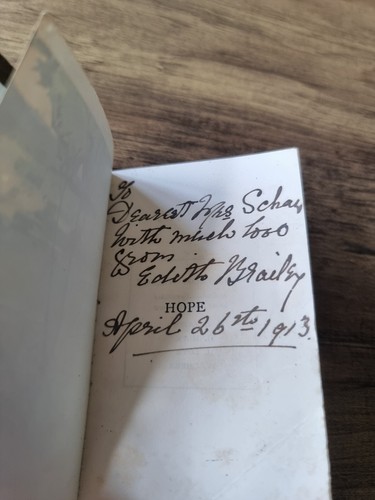 To
Dearest Mrs Schaw
With much love
from
Edith Brailey
HOPE
April 26th 1913.